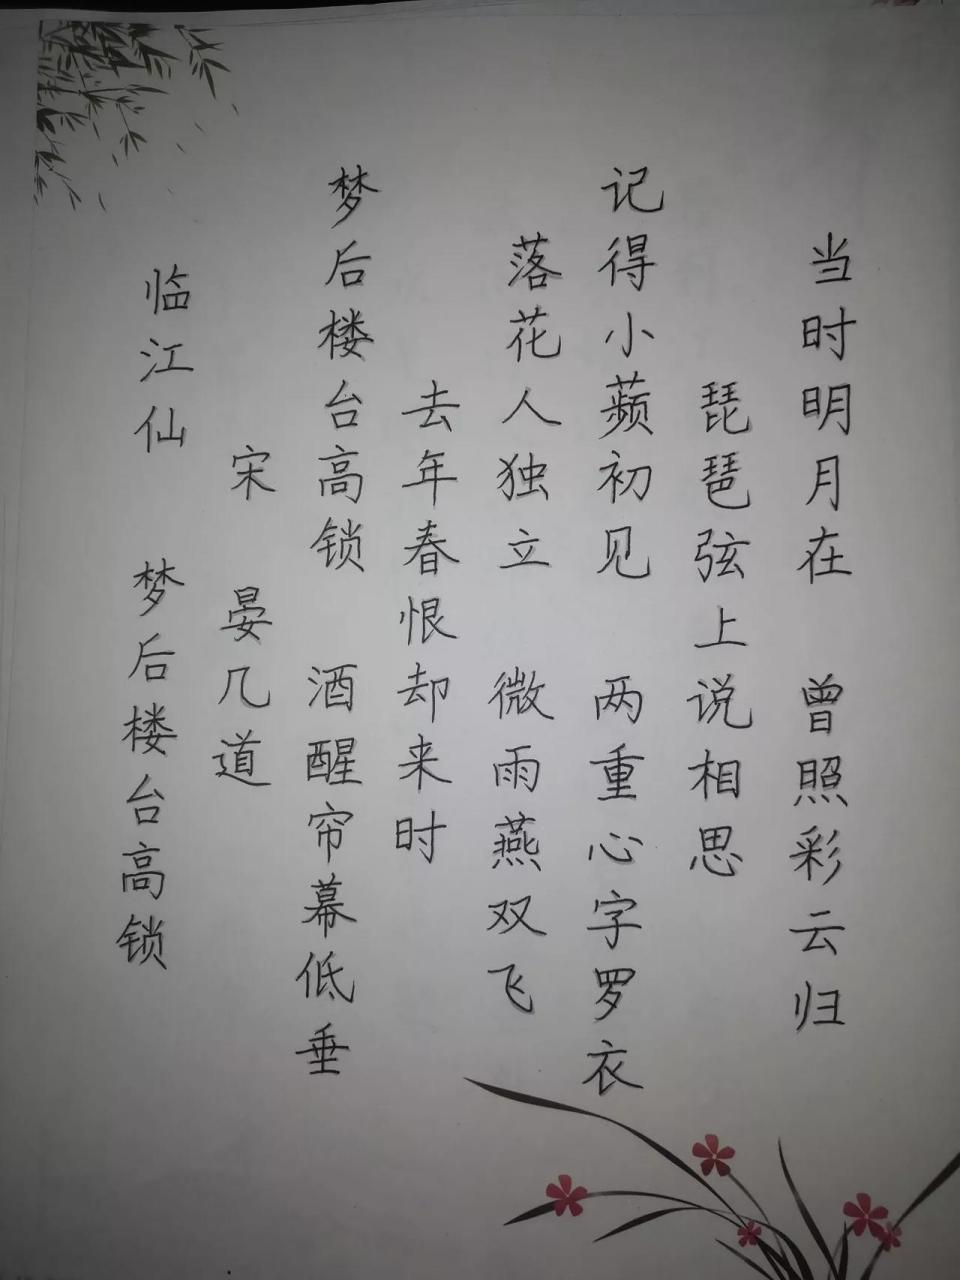 临江仙 梦后楼台高锁
宋 晏几道
梦后楼台高锁 酒醒帘幕低垂
去年春恨却来时
落花人独立 微雨燕双飞
记得小蘋初见 两重心字罗衣
琵琶弦上说相思
当时明月在 曾照彩云归